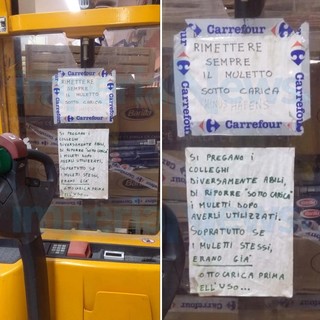 Carrefour
RIMETTERE
SEMPRE
IL MULETTO
SOTTO CARICA
Carrefour
SI PREGANO I
COLLEGHI
DIVERSAMENTE ABILI,
DI RIPORRE "SOTTO CARICA"
I MULETTI DOPO
AVERLI UTILIZZATI.
SOPRATUTTO SE
I MULETTI STESSI,
ERANO GIÀ
OTTO CARICA PRIMA
ELL'USO...
Carrefour
RIMETTERE
SEMPRE
IL MULETTO
SOTTO CARICA
Carrefour
SI PREGANO I
COLLEGHI
DIVERSAMENTE ABILI,
DI RIPORRE "SOTTO CARICA"
I MULETTI DOPO
AVERLI UTILIZZATI.
SOPRATUTTO SE
I MULETTI STESSI,
ERANO GIÀ
OTTO CARICA PRIMA
ELL'USO...